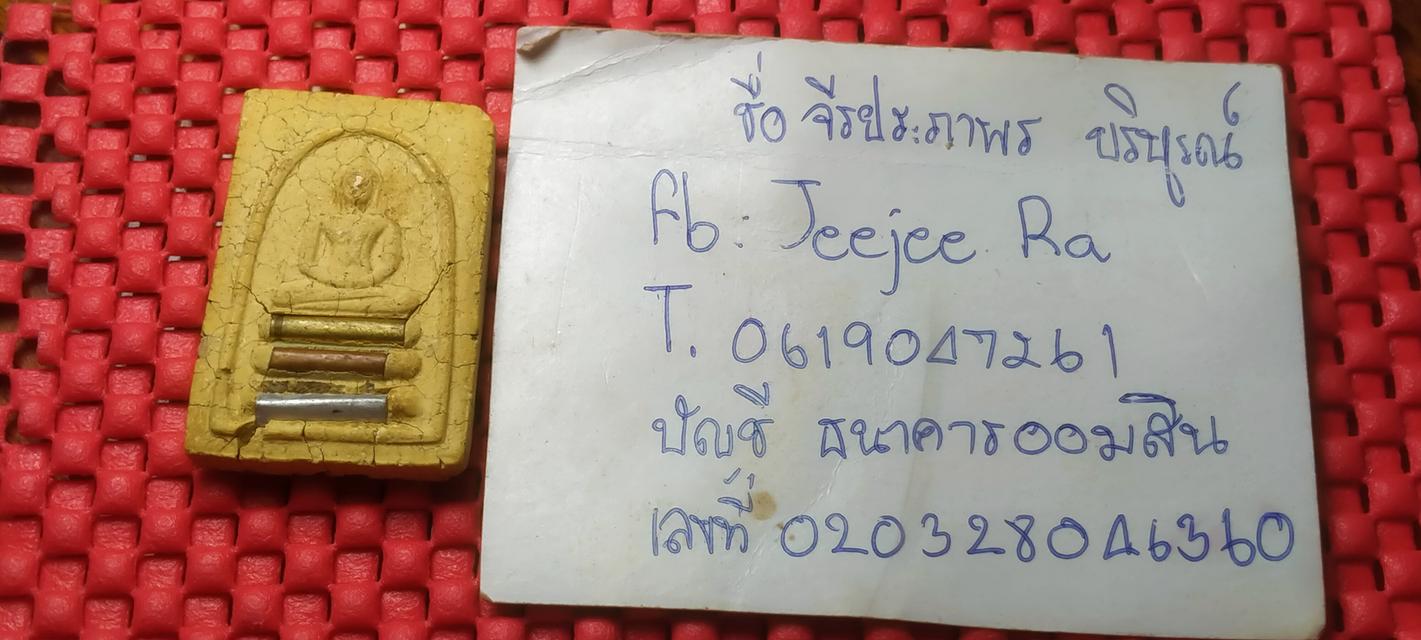 ชื่อ จีรประภาพร บริบูรณ์
fb: Jeejee Ra
T. 0619047261
บัญชี ธนาคารออมสิน
เลขที่ 020328046360